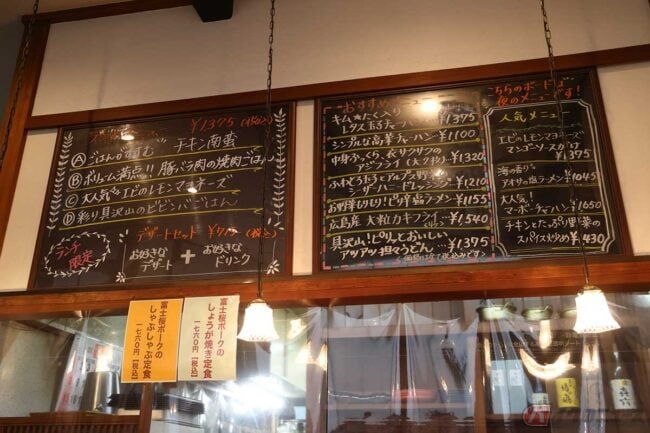 ¥1375(税込)
Ⓐごはんがすすむ チキン南蛮
Ⓑボリューム満点!! 豚バラ肉の焼肉ごはん
Ⓒ大人気 エビのレモンマヨネーズ
Ⓓ彩り具沢山のビビンバごはん
ランチ
限定
デザートセット ¥715(税込)
お好きな
デザート
+
お好きな
ドリンク
おすすめメニュー
キムたく入り
レタス玉子チャーハン ¥1375
シンプルな高菜チャーハン ¥1100
中身ふっくら、衣サクサクの
アジフライ(大2枚) ¥1320
ジンギハニードレッシング ¥1210
ラーメン ¥1155
広島産 大粒カキフライ ¥1540
具沢山!ピリッとおいしい
アツアツ担々うどん ¥1375
こちらのボードは
夜のメニューです!
人気メニュー
エビのレモンマヨネーズ
マンゴーソースがけ
¥1375
海の香り
アオサの塩ラーメン ¥1045
大人気!
マーボーチャーハン ¥1050
チキンとたっぷり野菜の
スパイス炒め ¥1,430
富士桜ポークの
しゃぶしゃぶ定食
一七六〇円【税込】
富士桜ポークの
しょうが焼き定食
一七六〇円【税込】